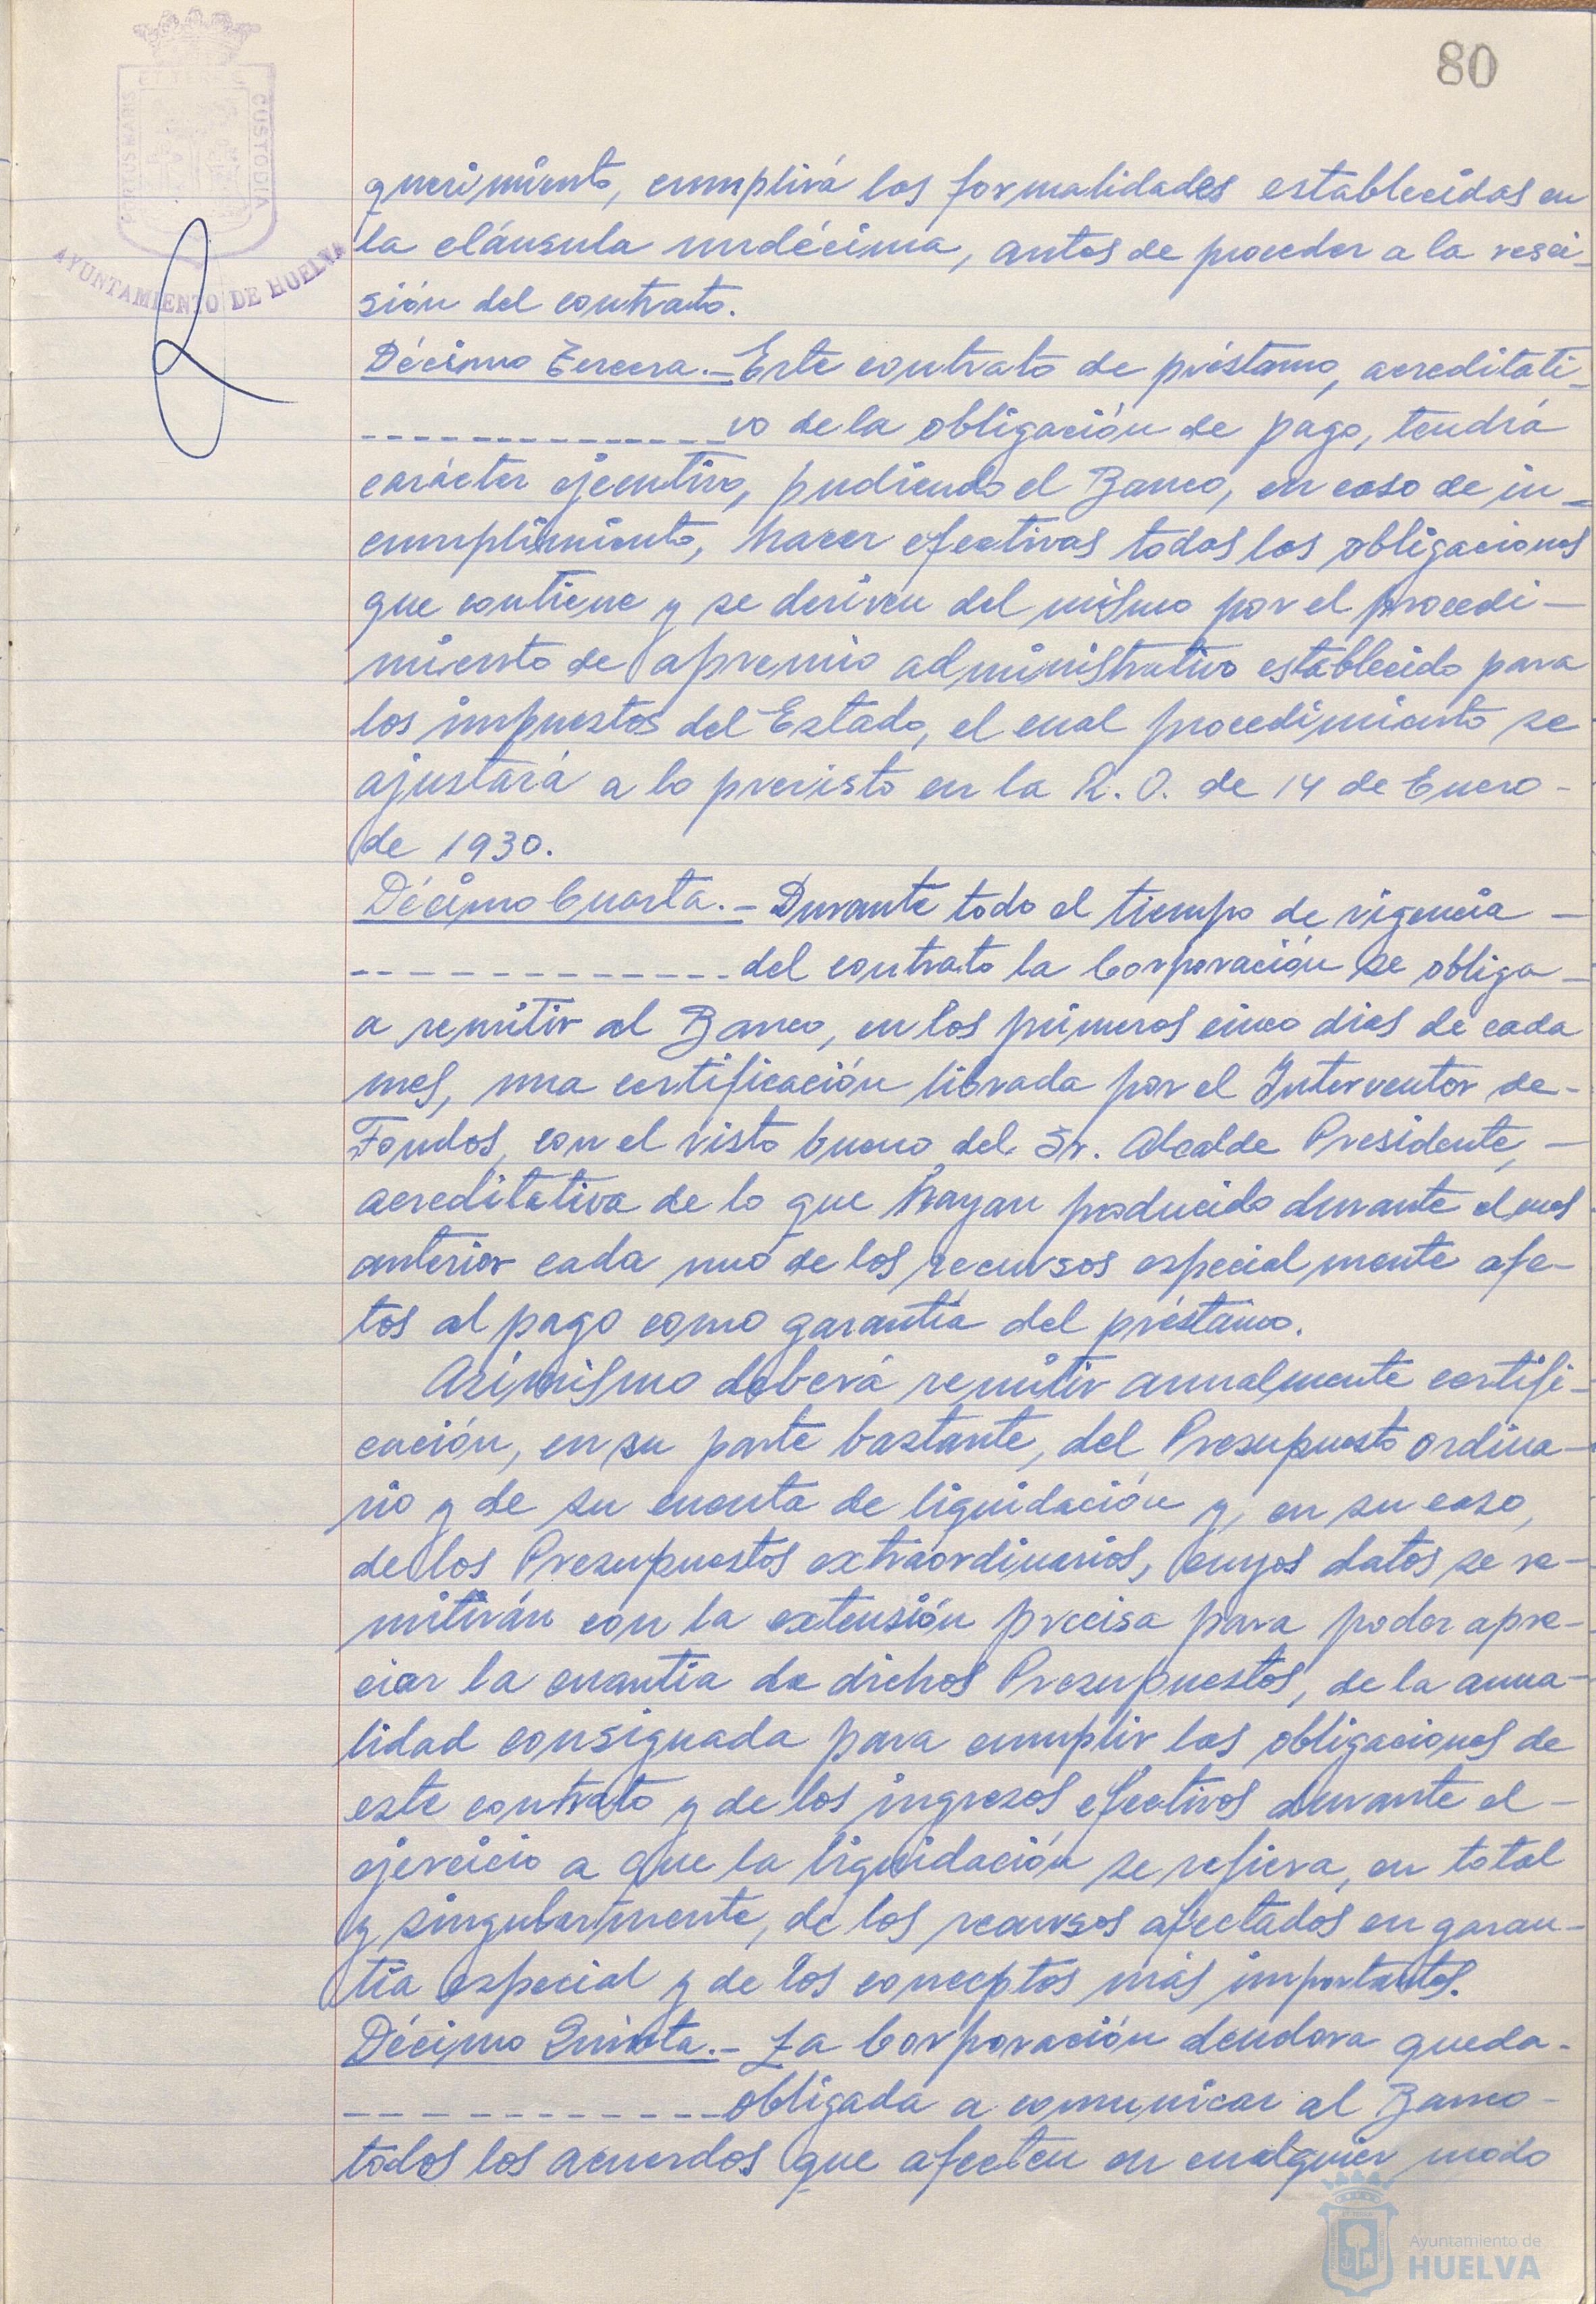 80
PORTUS MARIS
ET TERRE
CUSTODIA
AYUNTAMIENTO DE HUELVA
querimiento, cumplirá las formalidades establecidas en
la cláusula undécima, antes de proceder a la resci-
sión del contrato.
Décimo Tercera.- Este contrato de préstamo, acreditati-
-------------- vo de la obligación de pago, tendrá
carácter ejecutivo, pudiendo el Banco, en caso de in-
cumplimiento, hacer efectivas todas las obligaciones
que contiene y se deriven del mismo por el procedi-
miento de apremio administrativo establecido para
los impuestos del Estado, el cual procedimiento se
ajustará a lo previsto en la R. O. de 14 de Enero -
de 1930.
Décimo Cuarta.- Durante todo el tiempo de vigencia -
-------------- del contrato la Corporación se obliga -
a remitir al Banco, en los primeros cinco dias de cada
mes, una certificación librada por el Interventor de-
Fondos, con el visto bueno del Sr. Alcalde Presidente, -
acreditativa de lo que hayan producido durante el mes
anterior cada uno de los recursos especialmente afe-
tos al pago como garantía del préstamo.
Asimismo deberá remitir anualmente certifi-
cación, en su parte bastante, del Presupuesto ordina-
rio y de su cuenta de liquidación y, en su caso,
de los Presupuestos extraordinarios, cuyos datos se re-
mitirán con la extensión precisa para poder apre-
ciar la cuantía de dichos Presupuestos, de la anua-
lidad consignada para cumplir las obligaciones de
este contrato y de los ingresos efectivos durante el -
ejercicio a que la liquidación se refiera, en total
y singularmente, de los recursos afectados en garan-
tía especial y de los conceptos más importantes.
Décimo Quinta.- La Corporación deudora queda-
-------------- obligada a comunicar al Banco -
todos los acuerdos que afecten en cualquier modo
Ayuntamiento de
HUELVA